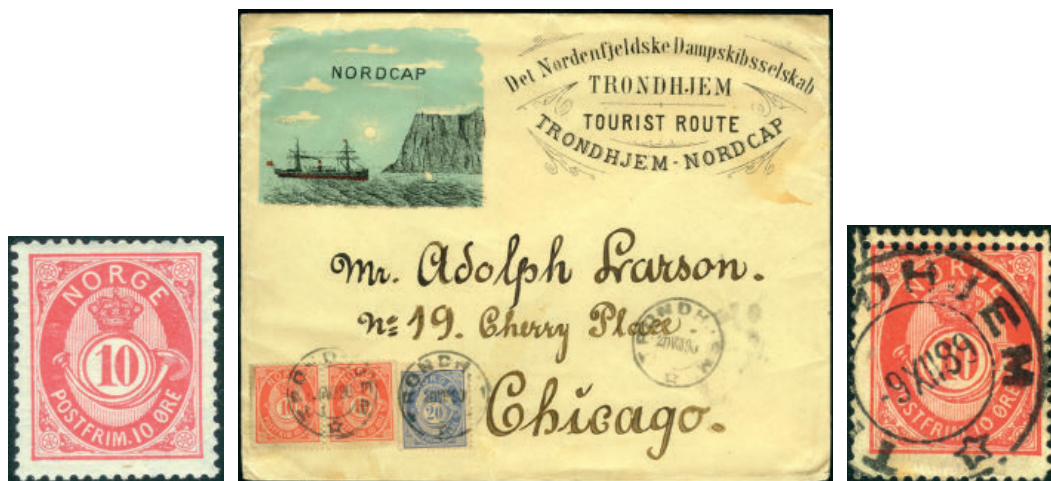 NORGE
10
POSTFRIM. 10 ØRE
NORDCAP
Det Nordenfjeldske Dampskibsselskab
TRONDHJEM
TOURIST ROUTE
TRONDHJEM-NORDCAP
Mr. Adolph Larson.
No 19. Cherry Place
Chicago.
TRONDHJEM
10
20
TRONDHJEM
19 XII 89